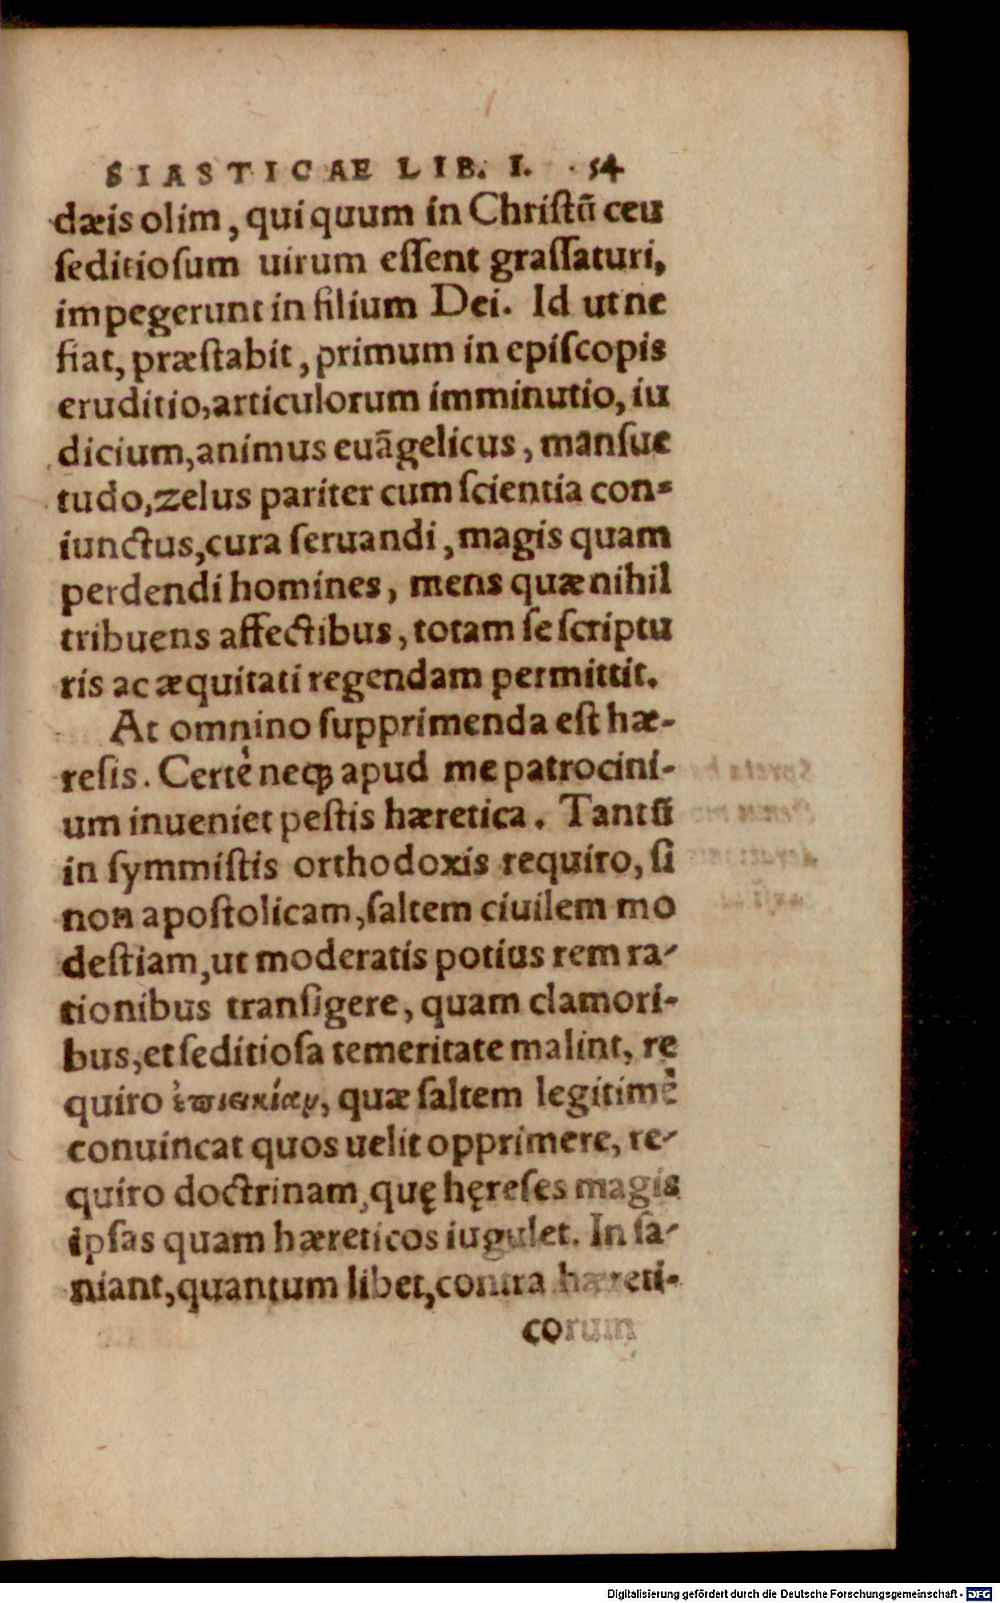 SIASTICAE LIB. I. 54
dæis olim, qui quum in Christũ ceu
seditiosum uirum essent grassaturi,
impegerunt in filium Dei. Id ut ne
fiat, præstabit, primum in episcopis
eruditio, articulorum imminutio, iu
dicium, animus euãgelicus, mansue
tudo, zelus pariter cum scientia con=
iunctus, cura seruandi, magis quam
perdendi homines, mens quæ nihil
tribuens affectibus, totam se scriptu
ris ac æquitati regendam permittit.
At omnino supprimenda est hæ-
resis. Certè neqꝫ apud me patrocini-
um inueniet pestis hæretica. Tantũ
in symmistis orthodoxis requiro, si
non apostolicam, saltem ciuilem mo
destiam, ut moderatis potius rem ra-
tionibus transigere, quam clamori-
bus, et seditiosa temeritate malint, re
quiro ἐπιεικίαν, quæ saltem legitimè
conuincat quos uelit opprimere, re-
quiro doctrinam, quę hęreses magis
ipsas quam hæreticos iugulet. In sa-
niant, quantum libet, contra hæreti-
corum
Digitalisierung gefördert durch die Deutsche Forschungsgemeinschaft - DFG